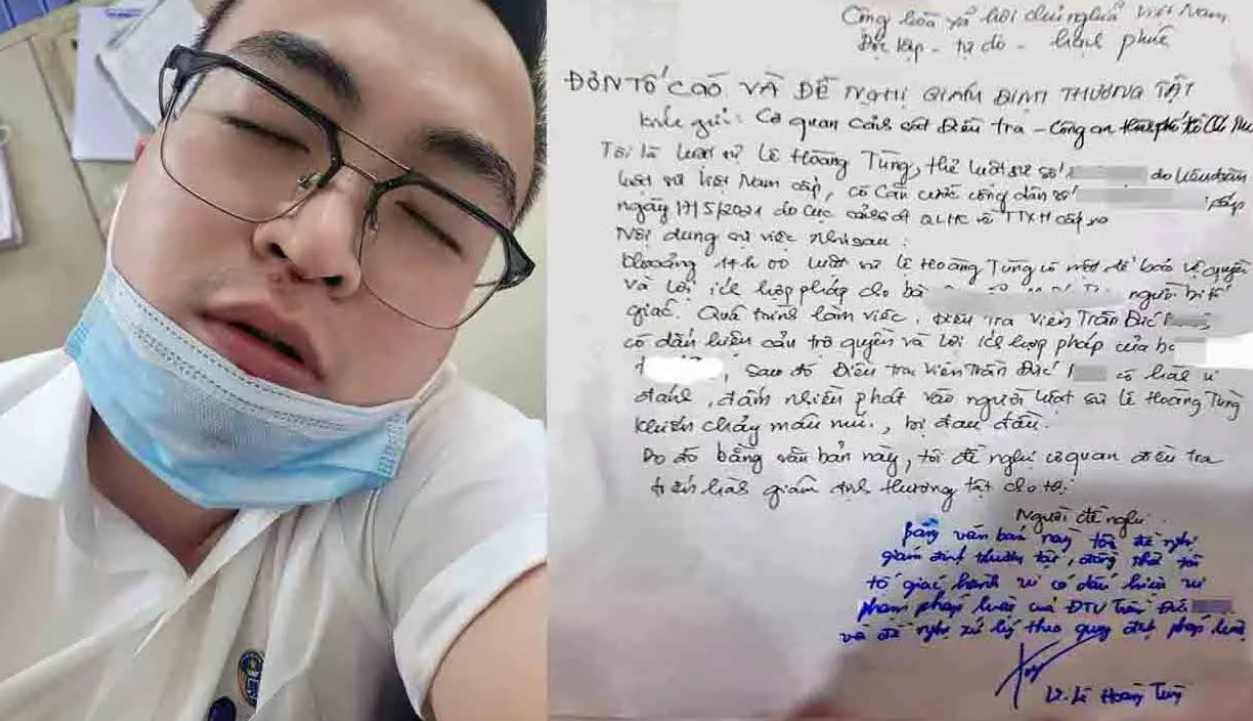 Cộng hòa xã hội chủ nghĩa Việt Nam
Độc lập - tự do - hạnh phúc
ĐƠN TỐ CÁO VÀ ĐỀ NGHỊ GIÁM ĐỊNH THƯƠNG TẬT
Kính gửi: Cơ quan Cảnh sát Điều tra - Công an thành phố Hồ Chí Minh
Tôi là luật sư Lê Hoàng Tùng, thẻ luật sư số do Liên đoàn
luật sư Việt Nam cấp, có Căn cước công dân số cấp
ngày 17/5/2021 do cục cảnh sát QLHC về TTXH cấp
Nội dung sự việc như sau:
Khoảng 14h00 luật sư Lê Hoàng Tùng có mặt để bảo vệ quyền
và lợi ích hợp pháp cho bà người bị tố
giác. Quá trình làm việc, Điều tra viên Trần Đức
có dấu hiệu cản trở quyền và lợi ích hợp pháp của bà
, Sau đó Điều tra viên Trần Đức có hành vi
đánh, đấm nhiều phát vào người luật sư Lê Hoàng Tùng
khiến chảy máu mũi, bị đau đầu.
Do đó bằng văn bản này, tôi đề nghị cơ quan điều tra
tiến hành giám định thương tật cho tôi.
Người đề nghị
Bằng văn bản này tôi đề nghị
giám định thương tật, đồng thời tôi
tố giác hành vi có dấu hiệu vi
phạm pháp luật của ĐTV Trần Đức
và đề nghị xử lý theo quy định pháp luật
LS. Lê Hoàng Tùng